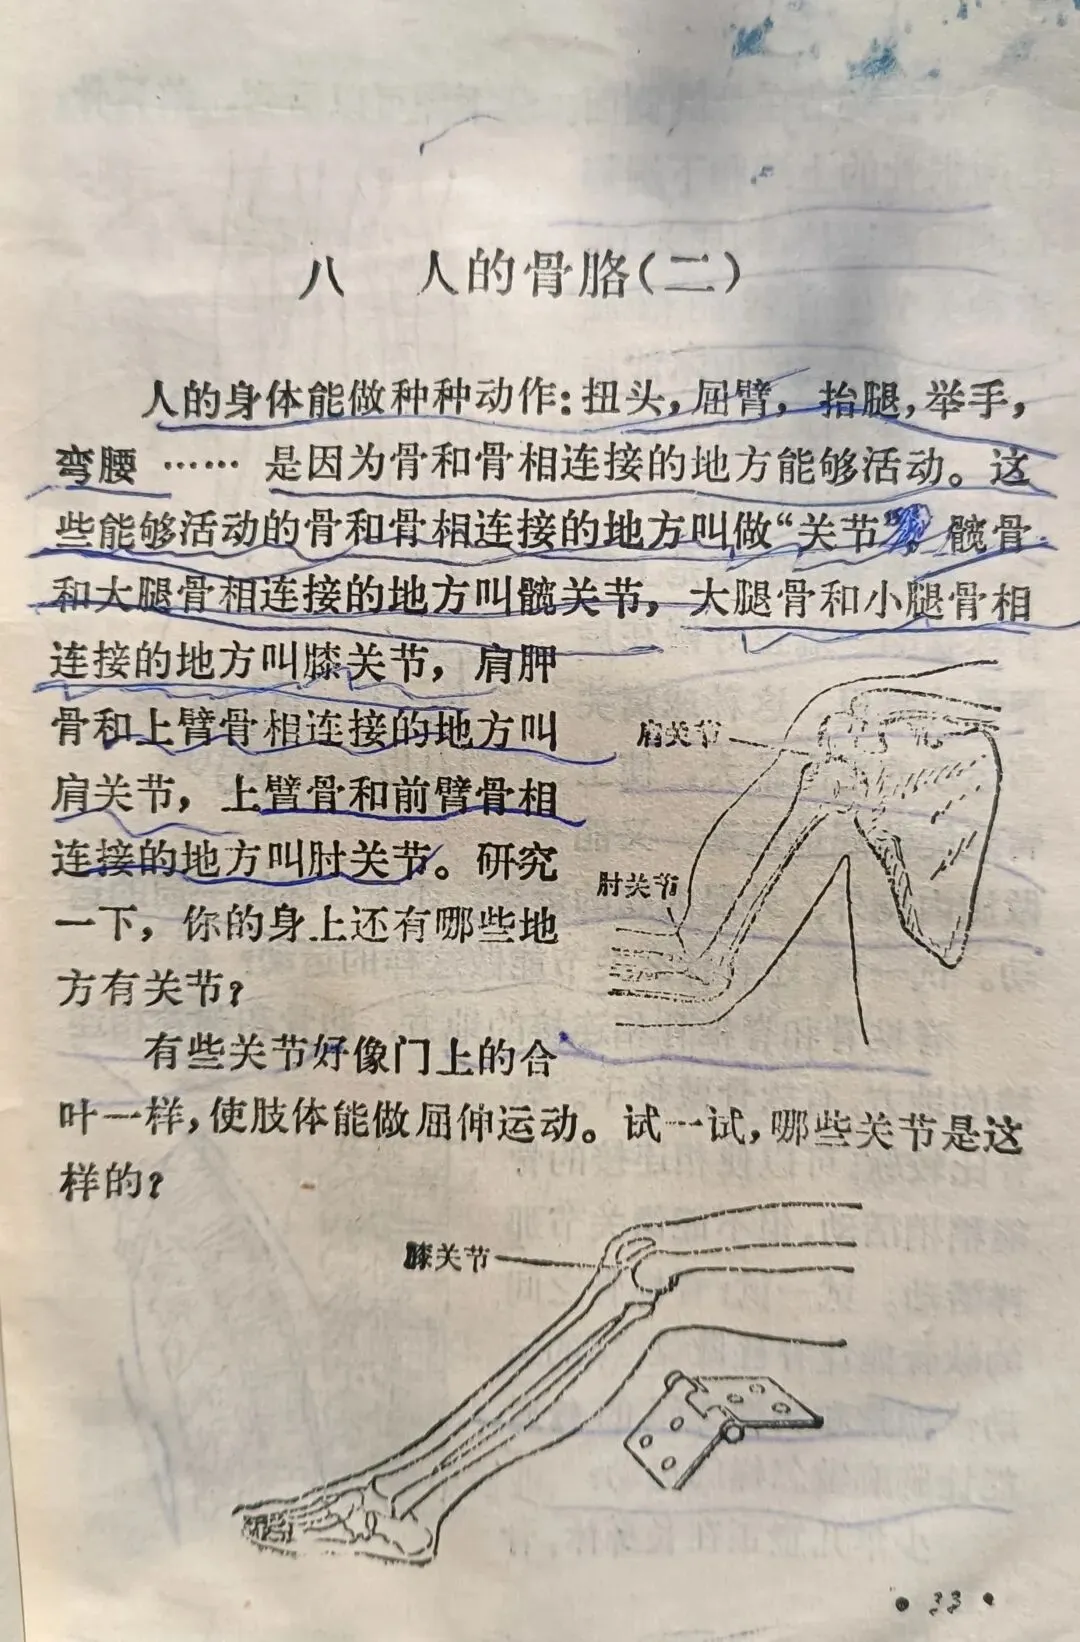 八 人的骨胳(二)
人的身体能做种种动作:扭头,屈臂,抬腿,举手,
弯腰……是因为骨和骨相连接的地方能够活动。这
些能够活动的骨和骨相连接的地方叫做“关节”。髋骨
和大腿骨相连接的地方叫髋关节,大腿骨和小腿骨相
连接的地方叫膝关节,肩胛
骨和上臂骨相连接的地方叫
肩关节,上臂骨和前臂骨相
连接的地方叫肘关节。研究
一下,你的身上还有哪些地
方有关节?
肩关节
肘关节
有些关节好像门上的合
叶一样,使肢体能做屈伸运动。试一试,哪些关节是这
样的?
膝关节
• 33 •